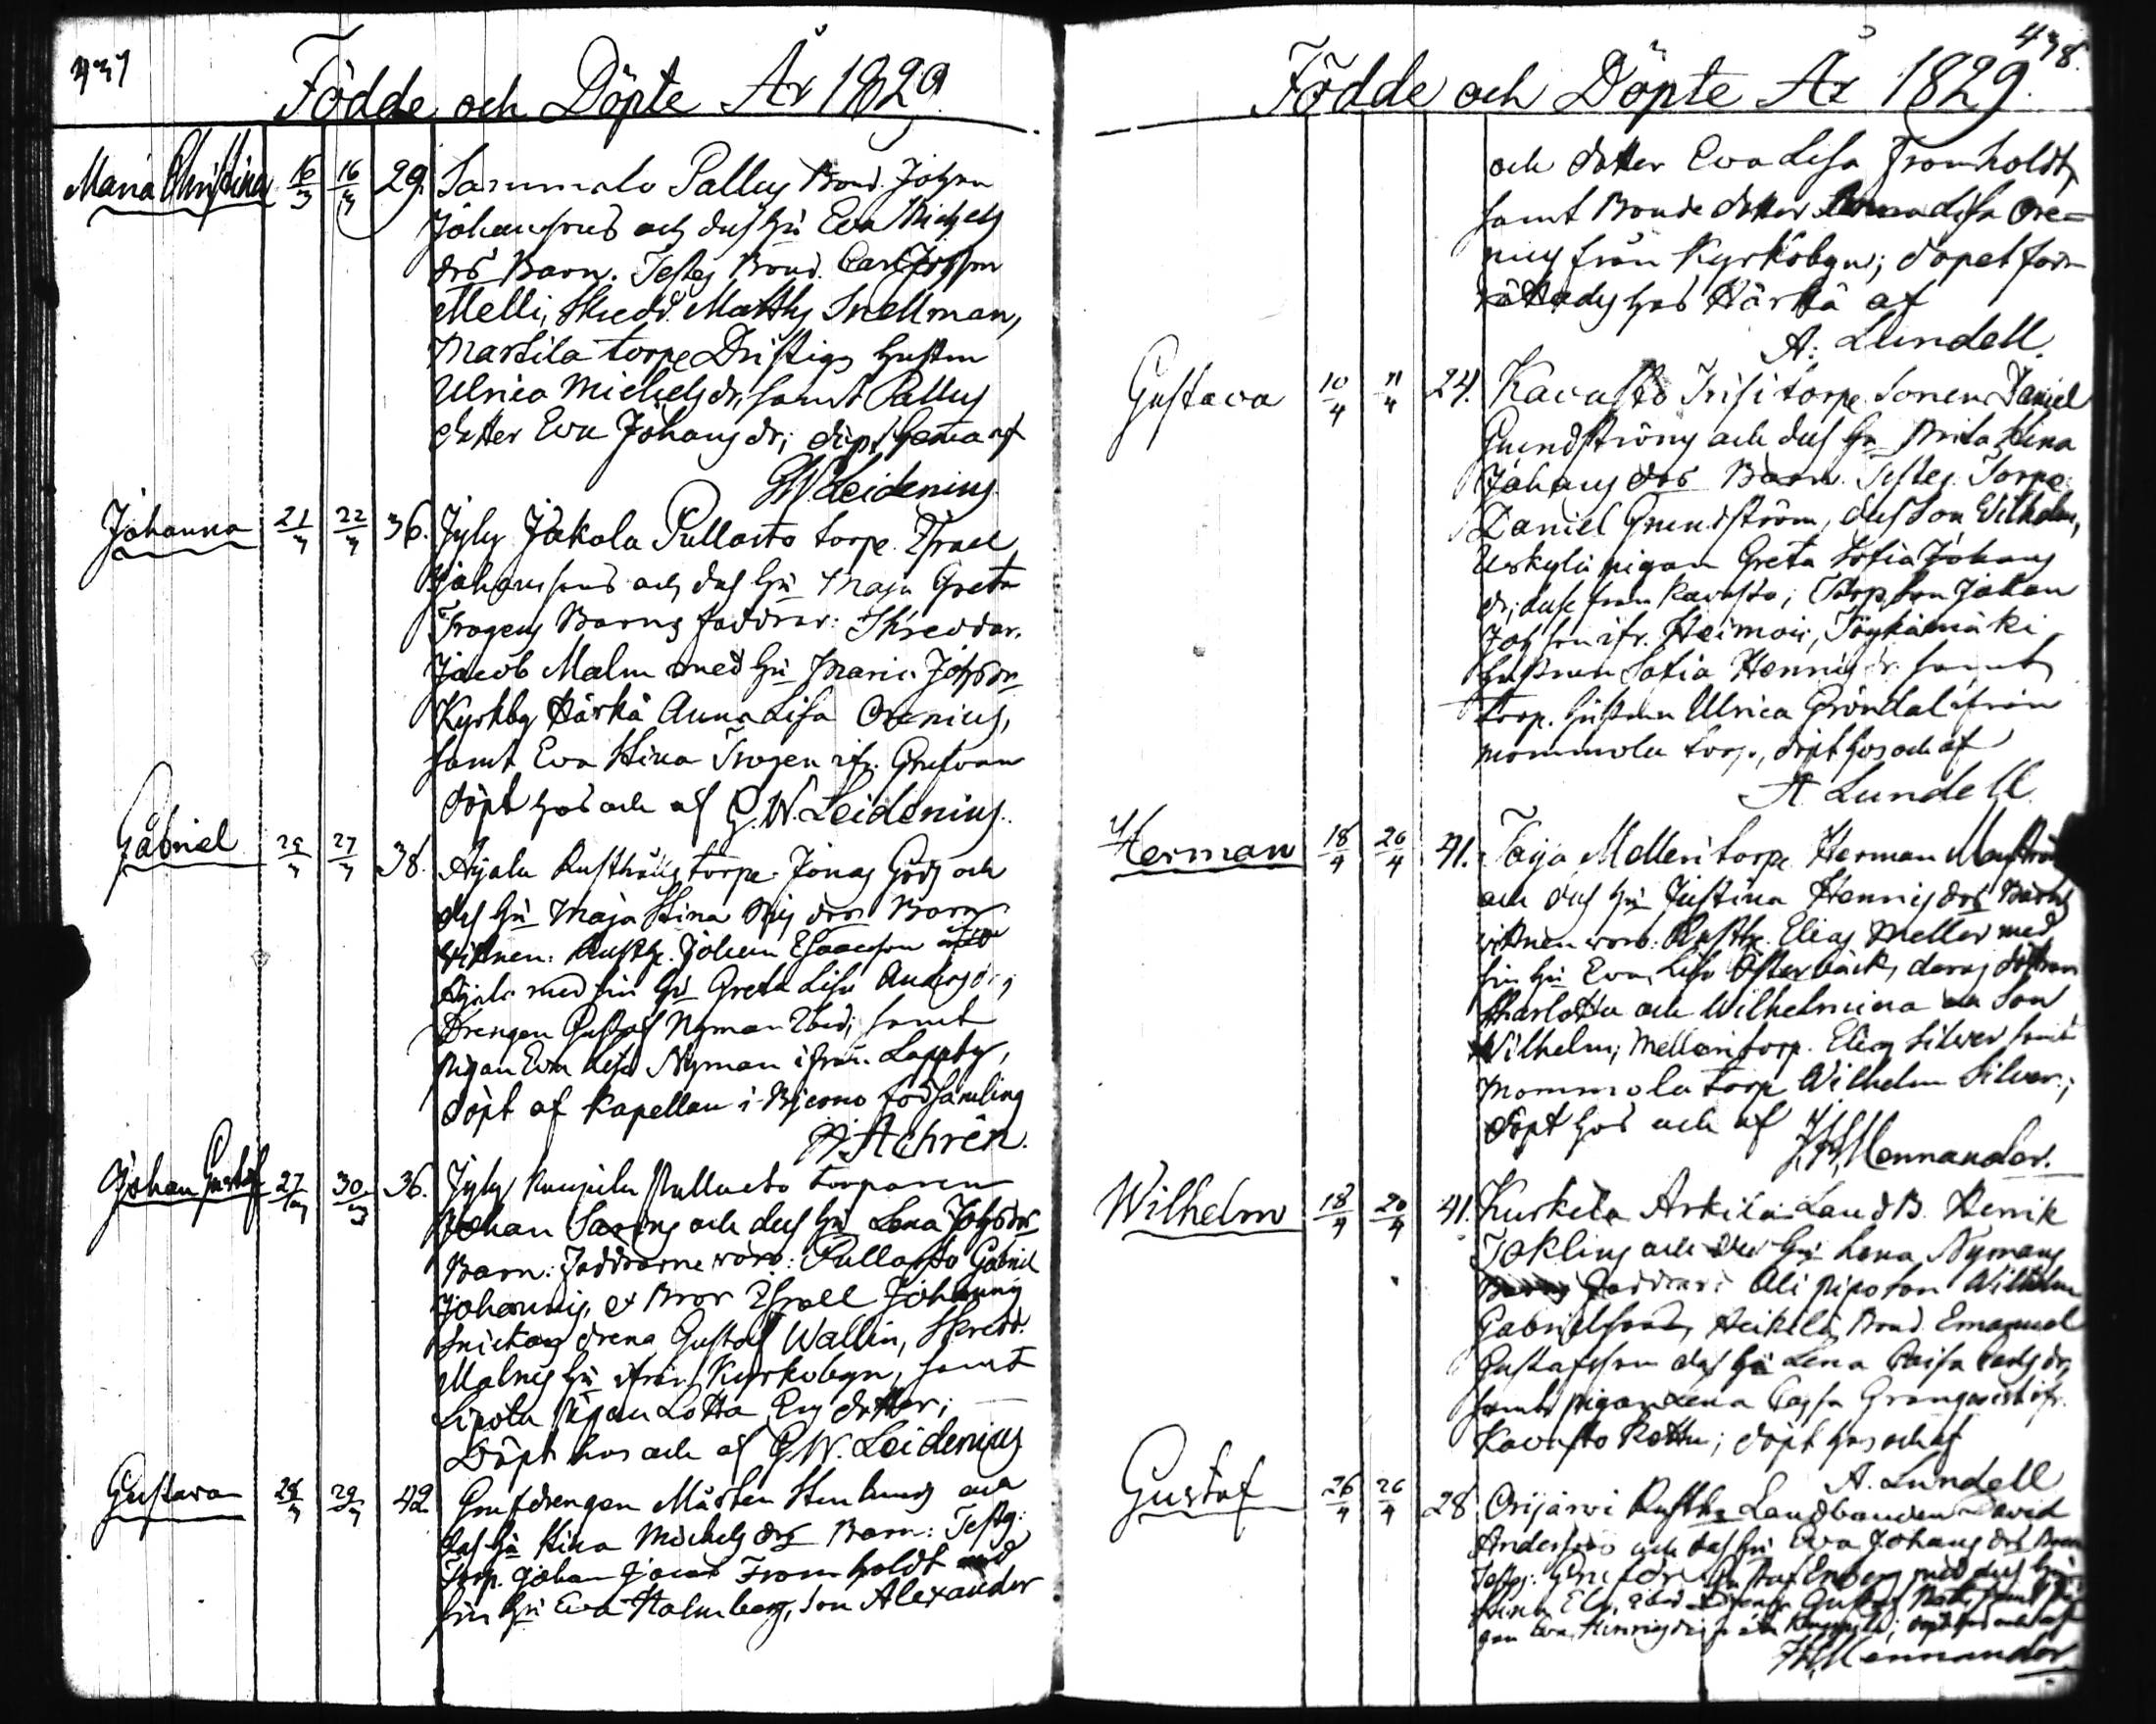 437
Födde och Döpte År 1829.
Maria Christina 16/3 16/3 29. Sammalo Pallus Bond. Johan
Johanssons och dess hu Eva Michels
drs Barn. Testes Bond. Carl
Melli, Skredd. Matths Snellman,
Martila torp. hustru
Ulrica Michelsdr, samt Pallus
dotter Eva Johansdr; döpt hema af
G.W. Leidenius.
Johanna 21/3 22/3 36. Jyly Jakola Pullasto torp. Israel
Johanssons och dess hu Maja Greta
Trogens Barns faddrar: Skreddar.
Jacob Malm med hu Maria Johsdr
Kyrkby Härkä Anna Lisa Orenius,
samt Eva Stina Trogen ifr. Grufvan
döpt hos och af G.W. Leidenius.
Gabriel 27/3 38. Aijala Rusthålls torp. Jonas och
dess hu Maja Stina drs Barn
vittnen: Rusth. Johan Esaacsson
Aijala med sin hu Greta Lisa Andersdr,
Drengen Gustaf Nyman ibid; samt
pigan Eva Lisa Nyman ifrån Lappby,
döpt af Kapellan i Bjerno församling
Achrén.
Johan Gustaf 27/3 30/3 36. Jyly Pullasto torparen
Johan och dess hu Lena Johsdrs
Barn: Faddrarne voro: Pullasto Gabriel
Johannis, & Bror Israel Johannis
Snickar dreng Gustaf Wallin, Skredd.
Malms hu ifrån Kyrkobyn, samt
Lipola pigan Lotta dotter;
Döpt hos och af G.W. Leidenius
Gustava 28/3 29/3 42 Grufdrengen Mårten Stenlund och
dess hu Stina Michels drs Barn: Testes:
Torp. Johan Jacob Fromholdt med
sin hu Eva Holmberg, son Alexander
438.
Födde och Döpte År 1829.
och dotter Eva Lisa Fromholdt,
samt Bonde dotter Anna Lisa Ore=
nius från Kyrkobyn; dopet för=
rättades hos Härkä af
A. Lundell.
Gustava 10/4 11/4 24. Kavasto torp. Sonen Daniel
Grundströms och dess hu Brita Stina
Johans drs Barn. Testes Torp.
Daniel Grundström, dess Son Vilhelm,
Uskyli pigan Greta Sofia Johans
dr; från Kavasto; Torp. son Johan
Johsson ifr. Heimois, Töykämäki
hustrun Sofia Henrichsdr samt
torp. hustrun Ulrica Gröndal ifrån
Mommola torp, döpt hos och af
A. Lundell.
Herman 18/4 20/4 41. Taija Melleri torp. Herman
och dess hu Justina Henrics drs Barns
vittnen voro: Rusth. Elias Meller med
sin hu Eva Lisa Österback, deras döttrar
Charlotta och Wilhelmina Son
Wilhelm; Melleri torp. Elias Silver samt
Mommola torp Wilhelm Silver;
döpt hos och af
J.H. Mennander.
Wilhelm 18/4 20/4 41. Kurkela Arkila Land B. Henrik
Jokling och dess hu Lena Nymans
Barns Faddrar: Ali Wilhelm
Gabrielsson, Heikkilä Bond. Emanuel
Gustafsson dess hu Lena Carlsdr,
samt pigan Lena Granqvist ifr.
Kavasto Kettu; döpt hos och af
A. Lundell
Gustaf 26/4 26/4 28 Orijärvi Rusth. Landbonden David
Anderssons och dess hu Eva Johans drs Barn
Testes: Gustaf Enberg med dess hu
Stina ibid Drengen Gustaf samt pi
gan Eva Henricsdr från; döpt hos och af
J.H. Mennander.